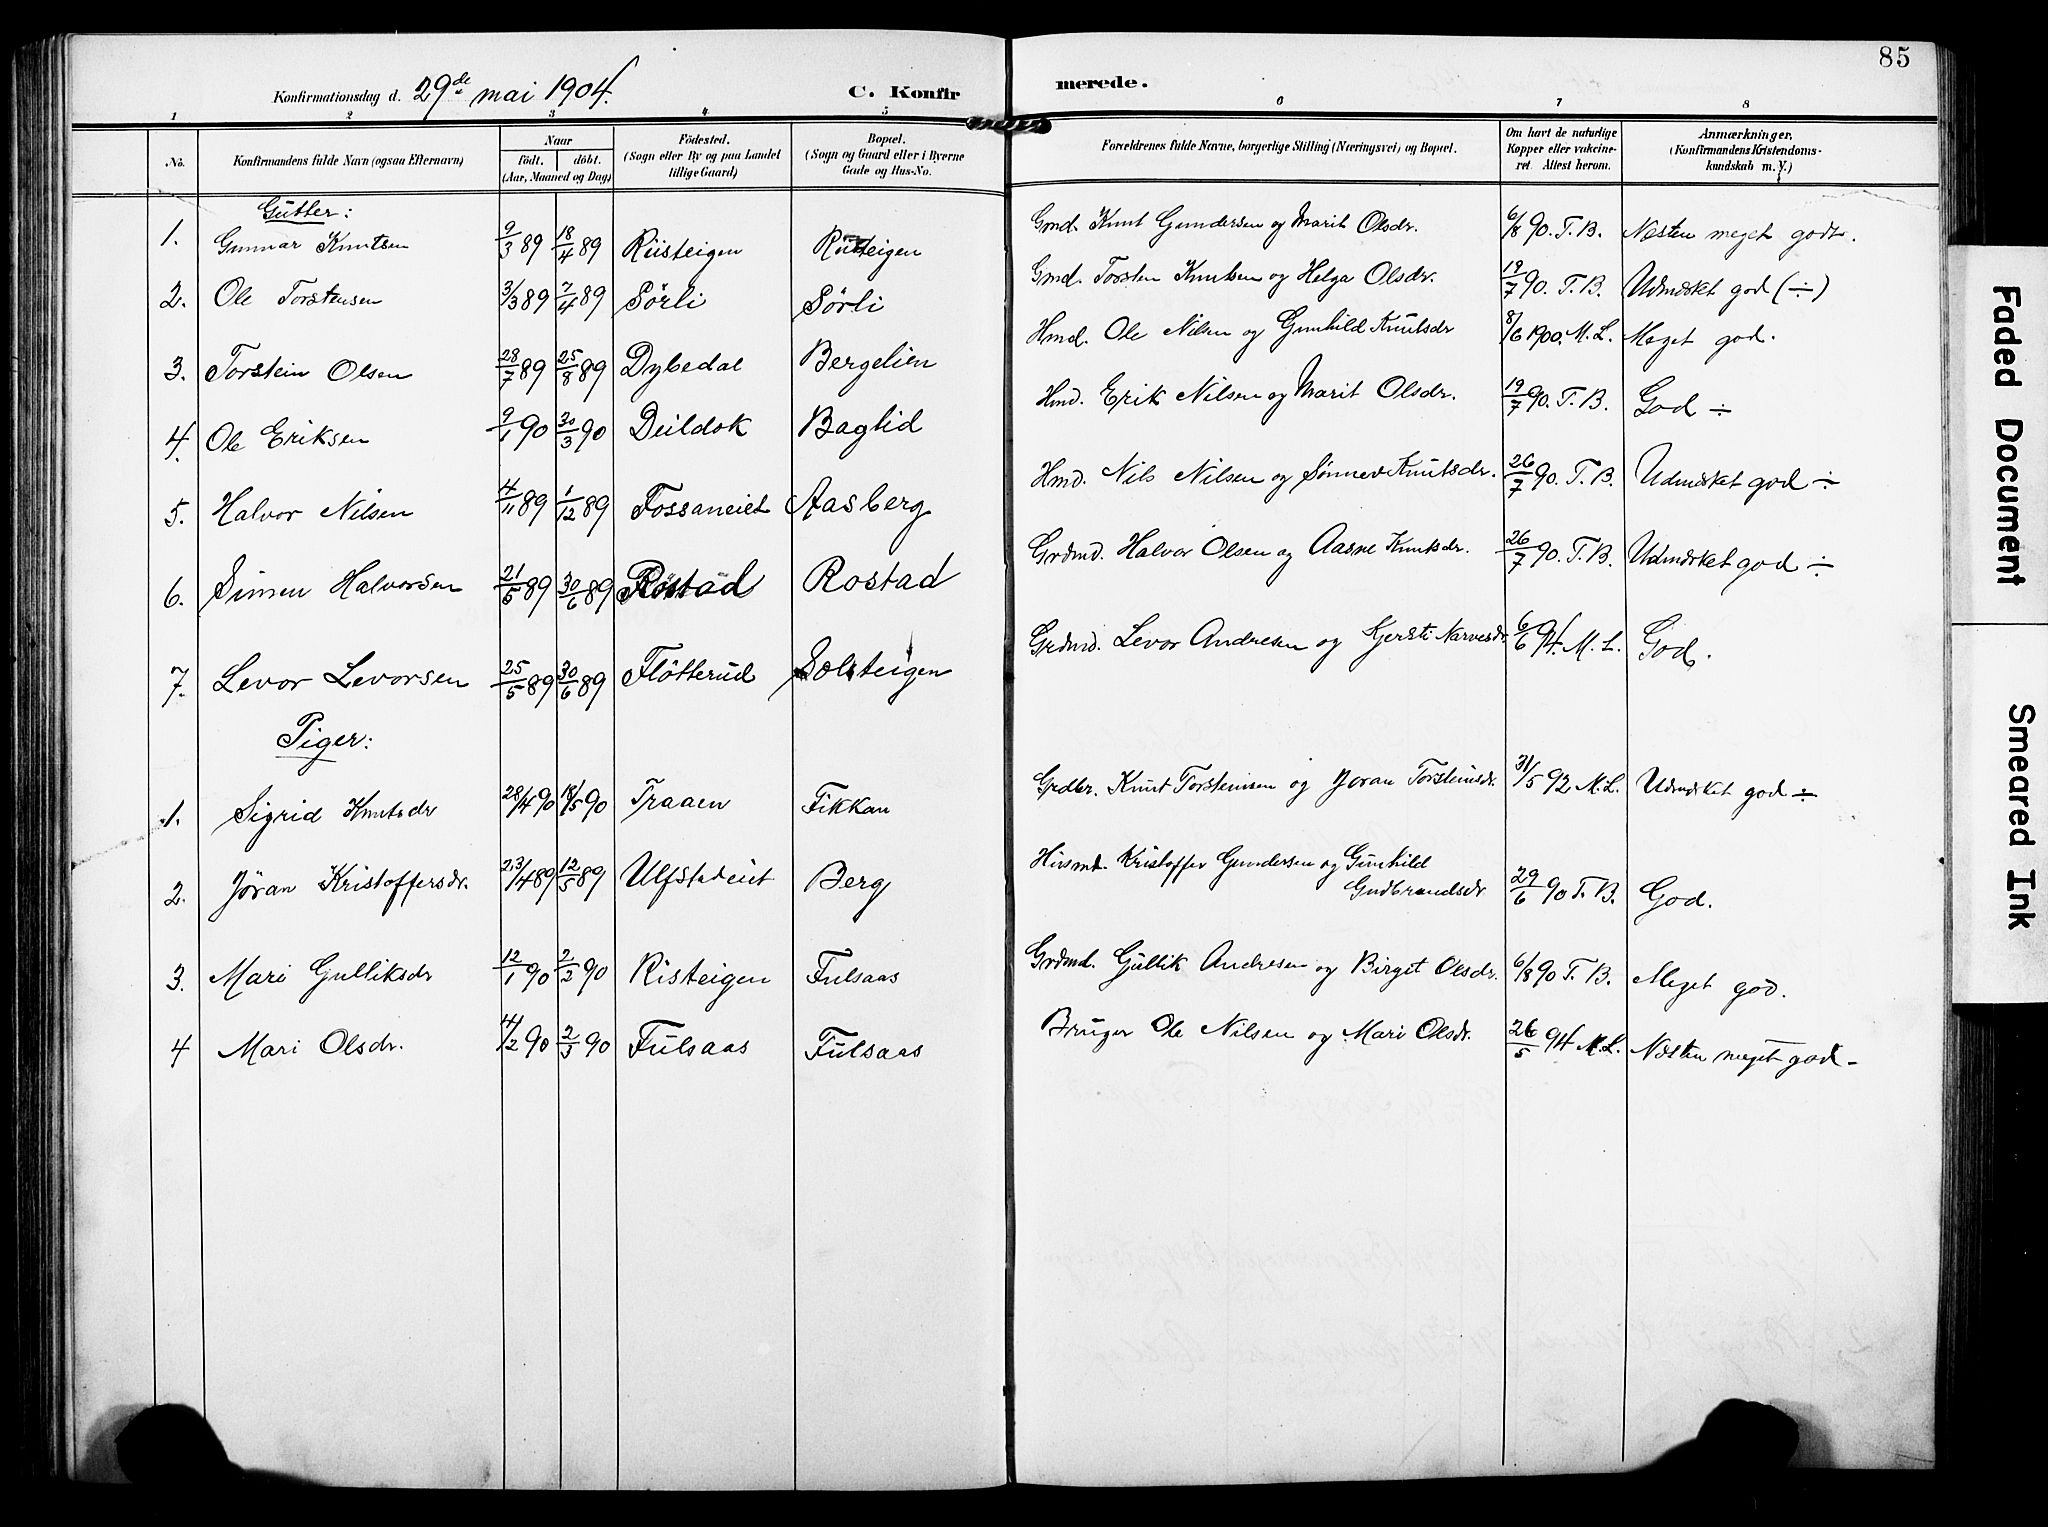 85
Konfirmationsdag d. 29de mai 1904. C. Konfirmerede.
1 2 3 4 5 6 7 8
No. Konfirmandens fulde Navn (ogsaa Efternavn) Naar födt. döbt. (Aar, Maaned og Dag) Födested. (Sogn eller By og paa Landet tillige Gaard) Bopæl. (Sogn og Gaard eller i Byerne Gade og Hus-No. Forældrenes fulde Navne, borgerlige Stilling (Næringsvei) og Bopæl. Om havt de naturlige Kopper eller vakcineret. Attest herom. Anmærkninger. (Konfirmandens Kristendomskundskab m. V.)
Gutter:
1. Gunnar Knutsen 9/3 89 18/4 89 Riisteigen Risteigen Gmd. Knut Gundersen og Marit Olsdr. 6/8 90. T. B. Næsten meget godt.
2. Ole Torstensen 3/3 89 7/4 89 Sörli Sörli Gmd. Torsten Knutsen og Helga Olsdr. 19/7 90. T. B. Udmærket god (÷)
3. Torstein Olsen 28/7 89 25/8 89 Dybedal Bergelien Hmd. Ole Nilsen og Gunhild Knutsdr 8/6 1900. M. L. Meget god.
4. Ole Eriksen 9/1 90 30/3 90 Deildok Baglid Hmd. Erik Nilsen og Marit Olsdr. 19/7 90. T. B. God ÷
5. Halvor Nilsen 4/11 89 1/12 89 Fossaneiet Aasberg Hmd. Nils Nilsen og Sönnev Knutsdr. 26/7 90. T. B. Udmærket god ÷
6. Simen Halvorsen 21/5 89 30/6 89 Rostad Rostad Grdmd. Halvor Olsen og Aasne Knutsdr. 26/7 90. T. B. Udmærket god ÷
7. Levor Levorsen 25/5 89 30/6 89 Flötterud Solsteigen Grdmd. Levor Andresen og Kjersti Narvesdr. 6/6 94. M. L. God.
Piger:
1. Sigrid Knutsdr 28/4 90 18/5 90 Traaen Fikkan Grdbr. Knut Torsteinsen og Jøran Torsteinsdr. 31/5 92 M. L. Udmærket god ÷
2. Jöran Kristoffersdr. 23/4 89 12/5 89 Ulfstadeiet Berg Husmd. Kristoffer Gundersen og Gunhild
Gudbrandsdr 29/6 90 T. B. God.
3. Mari Gulliksdr 12/1 90 2/2 90 Risteigen Fulsaas Grdmd. Gullik Andresen og Birget Olsdr. 6/8 90 T. B. Meget god.
4 Mari Olsdr. 4/2 90 2/3 90 Fulsaas Fulsaas Bruger Ole Nilsen og Mari Olsdr. 26/5 94 M. L. Næsten meget god -
Faded Document
Smeared Ink